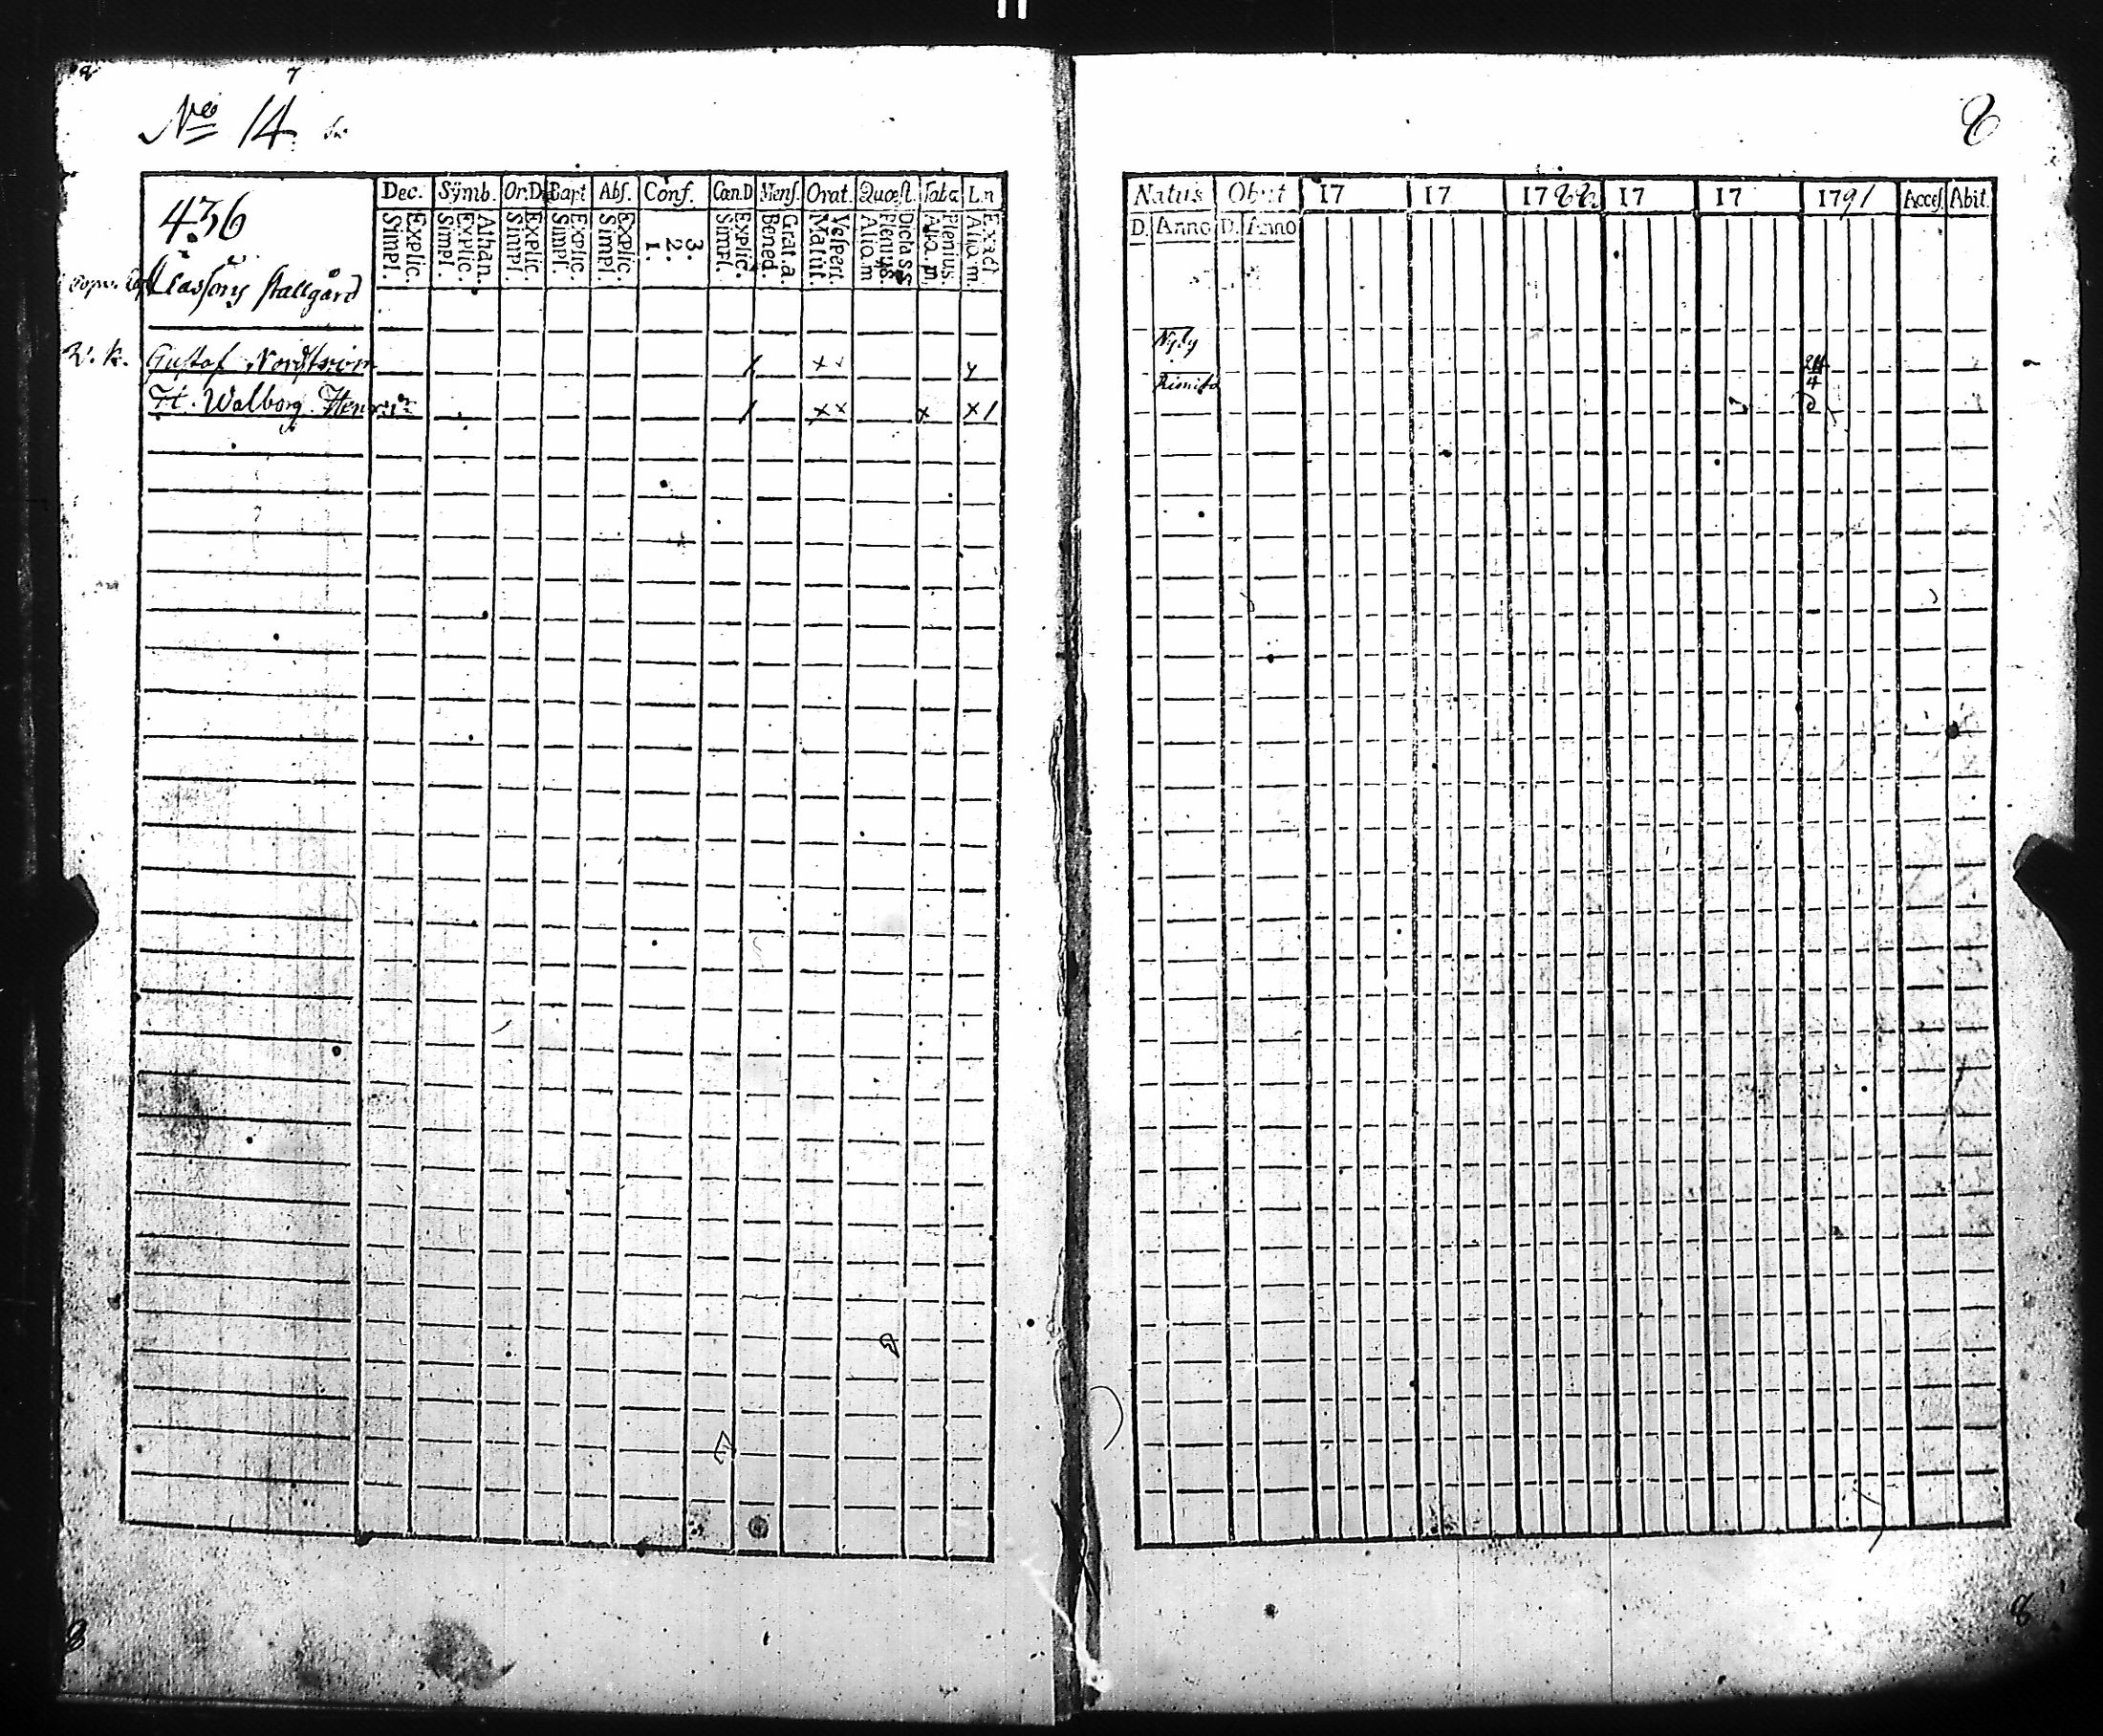 7
No 14
8
436
Dec. Symb. Or.D Bapt Abs. Conf. Cœn.D Mens. Orat. Quæst. Tabœ L.n
Explic. Simpl. Athan. Explic. Simpl. Explic. Simpl. Explic. Simpl. Explic. Simpl. 3. 2. 1. Explic. Simpl. Grat.a. Bened. Vespert. Matut. Dicta SS Plenius. Aliq.m Plenius. Aliq.m. Exact Aliq.m.
Classons stallgård
W. k. Gustaf Nordström x x
H. Walborg Henr:dr x x x x 1
Natus Obiit 17 17 1788 17 17 1791 Acces. Abit.
D. Anno D. Anno
Nyby
Rimito 24
4
8
8